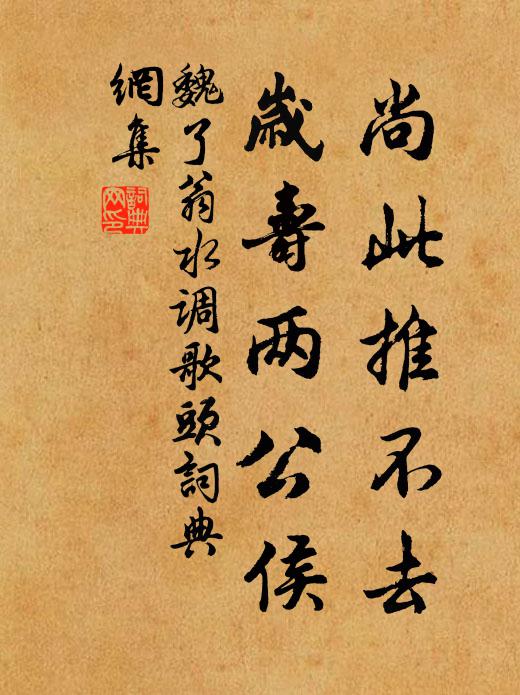 尚此推不去
歲壽两公侯
魏了翁水调歌頭詞典
網集
詞典
网印